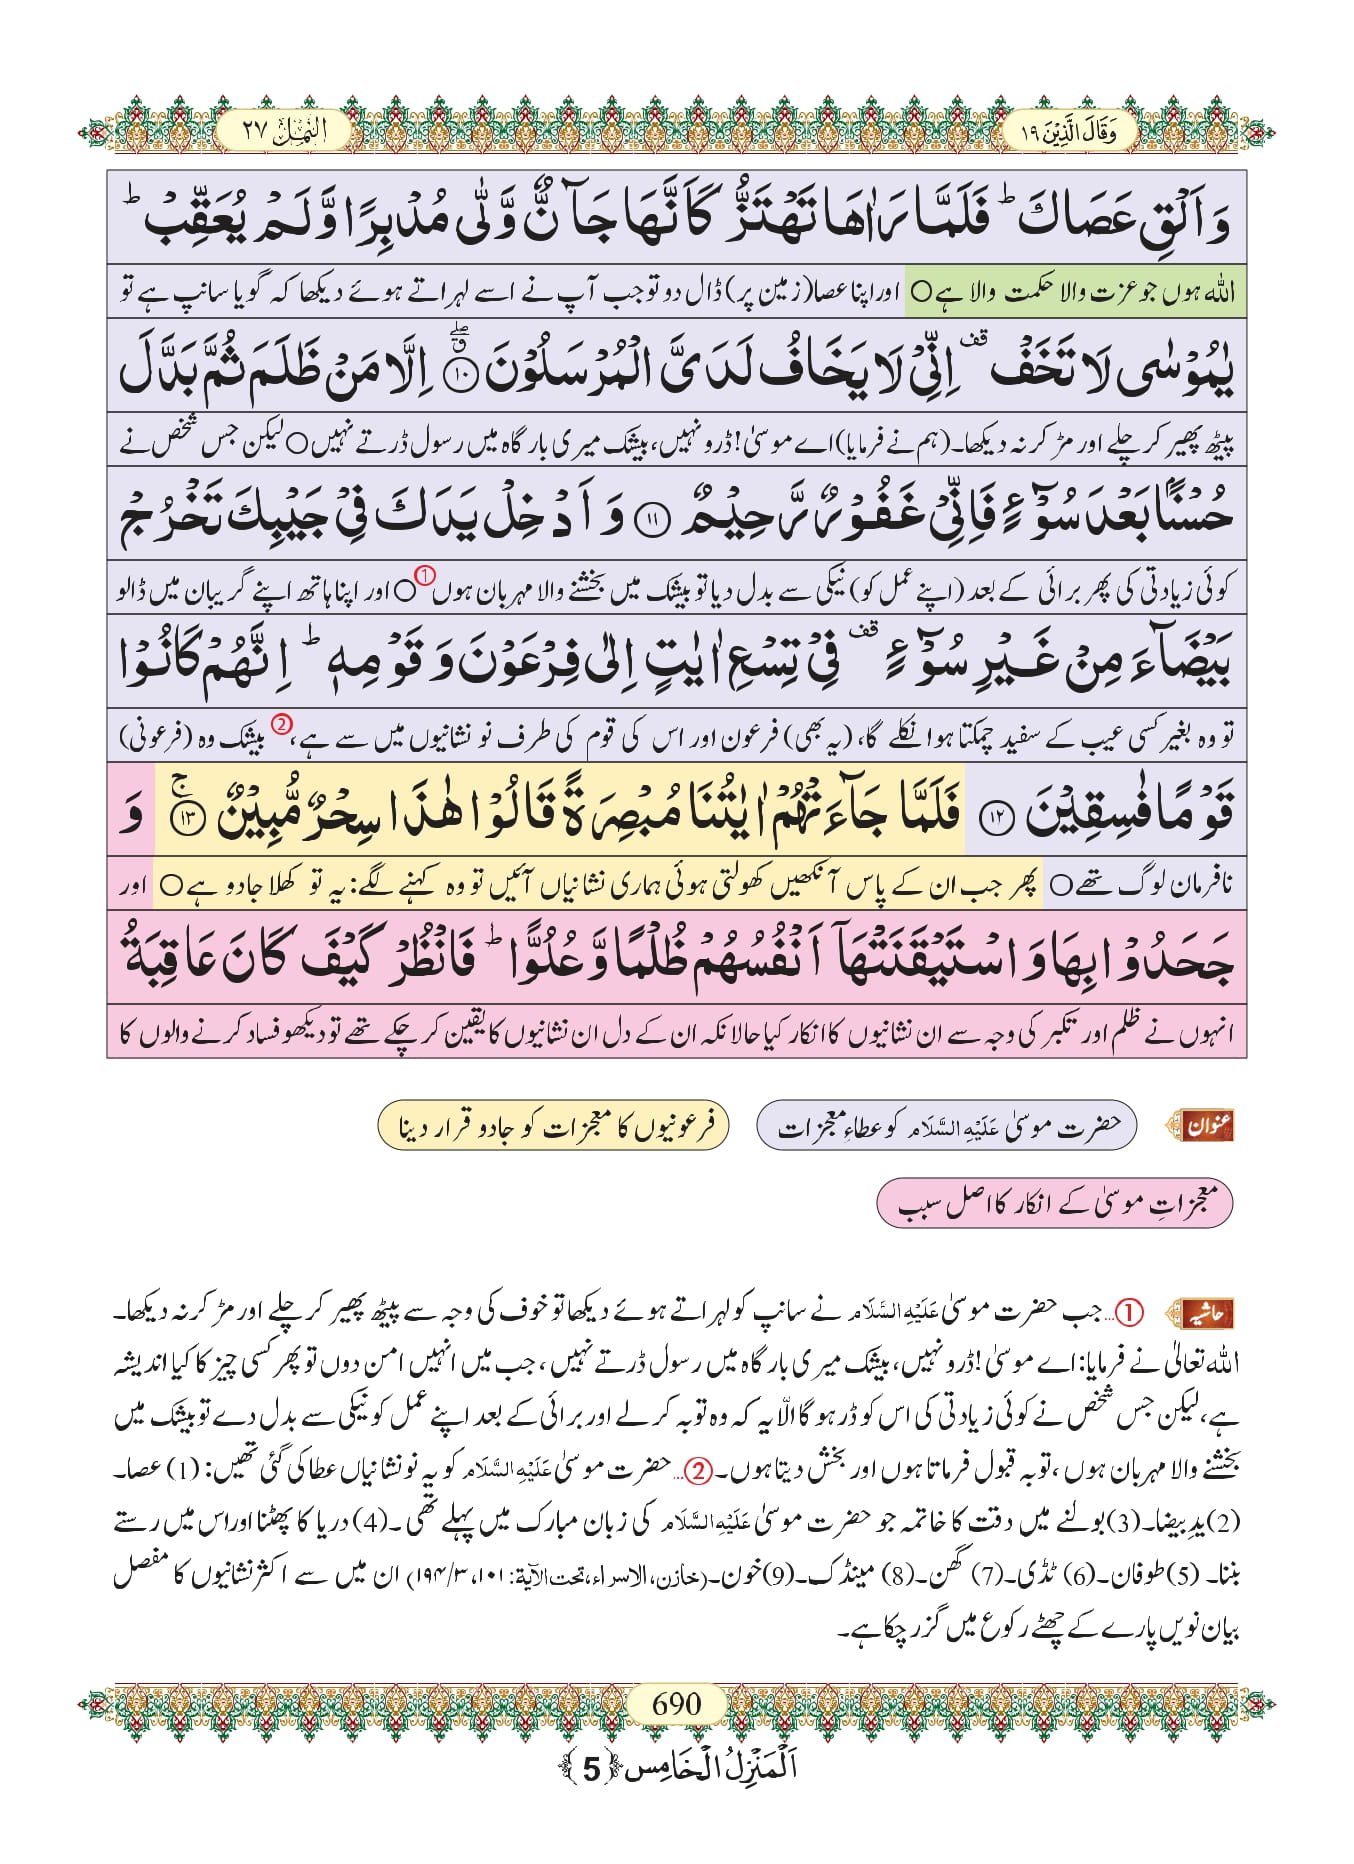 وَقَالَ الَّذِیْنَ ۱۹
النَّمْل ۲۷
وَ اَلْقِ عَصَاكَؕ فَلَمَّا رَاٰهَا تَهْتَزُّ كَاَنَّهَا جَآنٌّ وَّلّٰى مُدْبِرًا وَّ لَمْ یُعَقِّبْؕ
اللہ ہوں جو عزت والا حکمت والا ہے○ اور اپنا عصا (زمین پر) ڈال دو تو جب آپ نے اسے لہراتے ہوئے دیکھا کہ گویا سانپ ہے تو
یٰمُوْسٰى لَا تَخَفْ قف اِنِّیْ لَا یَخَافُ لَدَیَّ الْمُرْسَلُوْنَ ﴿۱۰﴾ اِلَّا مَنْ ظَلَمَ ثُمَّ بَدَّلَ
پیٹھ پھیر کر چلے اور مڑ کر نہ دیکھا۔ (ہم نے فرمایا) اے موسیٰ! ڈرو نہیں، بیشک میری بارگاہ میں رسول ڈرتے نہیں○ لیکن جس شخص نے
حُسْنًۢا بَعْدَ سُوْٓءٍ فَاِنِّیْ غَفُوْرٌ رَّحِیْمٌ ﴿۱۱﴾ وَ اَدْخِلْ یَدَكَ فِیْ جَیْبِكَ تَخْرُ جْ
کوئی زیادتی کی پھر برائی کے بعد (اپنے عمل کو) نیکی سے بدل دیا تو بیشک میں بخشنے والا مہربان ہوں○① اور اپنا ہاتھ اپنے گریبان میں ڈالو
بَیْضَآءَ مِنْ غَیْرِ سُوْٓءٍ قف فِیْ تِسْعِ اٰیٰتٍ اِلٰى فِرْعَوْنَ وَ قَوْمِهٖؕ اِنَّهُمْ كَانُوْا
تو وہ بغیر کسی عیب کے سفید چمکتا ہوا نکلے گا، (یہ بھی) فرعون اور اس کی قوم کی طرف نو نشانیوں میں سے ہے،② بیشک وہ (فرعونی)
قَوْمًا فٰسِقِیْنَ ﴿۱۲﴾ فَلَمَّا جَآءَتْهُمْ اٰیٰتُنَا مُبْصِرَةً قَالُوْا هٰذَا سِحْرٌ مُّبِیْنٌ ﴿۱۳﴾ۚ وَ
نافرمان لوگ تھے○ پھر جب ان کے پاس آنکھیں کھولتی ہوئی ہماری نشانیاں آئیں تو وہ کہنے لگے: یہ تو کھلا جادو ہے○ اور
جَحَدُوْا بِهَا وَ اسْتَیْقَنَتْهَاۤ اَنْفُسُهُمْ ظُلْمًا وَّ عُلُوًّاؕ فَانْظُرْ كَیْفَ كَانَ عَاقِبَةُ
انہوں نے ظلم اور تکبر کی وجہ سے ان نشانیوں کا انکار کیا حالانکہ ان کے دل ان نشانیوں کا یقین کر چکے تھے تو دیکھو فساد کرنے والوں کا
عنوان حضرت موسیٰ عَلَیْهِ السَّلَام کو عطاءِ معجزات فرعونیوں کا معجزات کو جادو قرار دینا
معجزاتِ موسیٰ کے انکار کا اصل سبب
حاشیہ ①... جب حضرت موسیٰ عَلَیْهِ السَّلَام نے سانپ کو لہراتے ہوئے دیکھا تو خوف کی وجہ سے پیٹھ پھیر کر چلے اور مڑ کر نہ دیکھا۔
اللہ تعالیٰ نے فرمایا: اے موسیٰ! ڈرو نہیں، بیشک میری بارگاہ میں رسول ڈرتے نہیں، جب میں انہیں امن دوں تو پھر کسی چیز کا کیا اندیشہ
ہے، لیکن جس شخص نے کوئی زیادتی کی اس کو ڈر ہوگا الّا یہ کہ وہ توبہ کرلے اور برائی کے بعد اپنے عمل کو نیکی سے بدل دے تو بیشک میں
بخشنے والا مہربان ہوں، توبہ قبول فرماتا ہوں اور بخش دیتا ہوں۔ ②... حضرت موسیٰ عَلَیْهِ السَّلَام کو یہ نو نشانیاں عطا کی گئی تھیں: (1) عصا۔
(2) یدِ بیضا۔ (3) بولنے میں دقت کا خاتمہ جو حضرت موسیٰ عَلَیْهِ السَّلَام کی زبان مبارک میں پہلے تھی۔ (4) دریا کا پھٹنا اور اس میں رستے
بننا۔ (5) طوفان۔ (6) ٹڈی۔ (7) گھن۔ (8) مینڈک۔ (9) خون۔ (خازن، الاسراء، تحت الآیة: ۱۰۱، ۱۹۴/۳) ان میں سے اکثر نشانیوں کا مفصل
بیان نویں پارے کے چھٹے رکوع میں گزر چکا ہے۔
690
اَلْمَنْزِلُ الْخَامِس ﴿5﴾